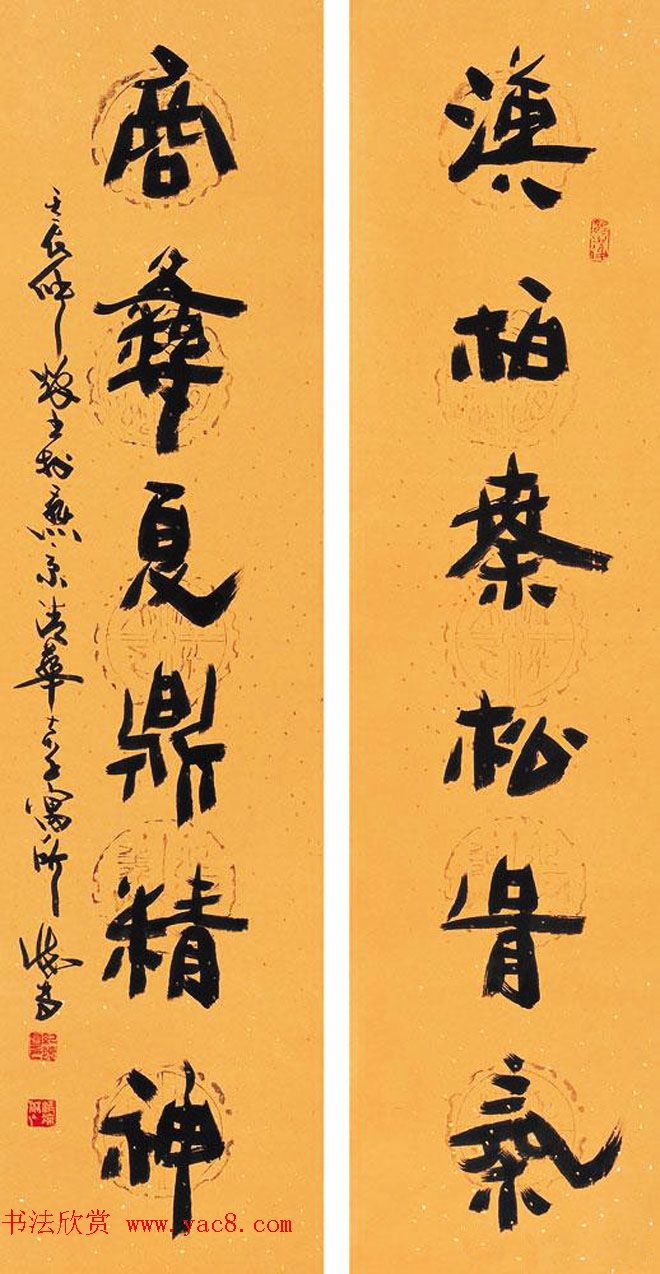 漢柏秦松骨氣
商彝夏鼎精神
壬辰仲秋 燕京清華大學寓所
书法欣赏 www.yac8.com